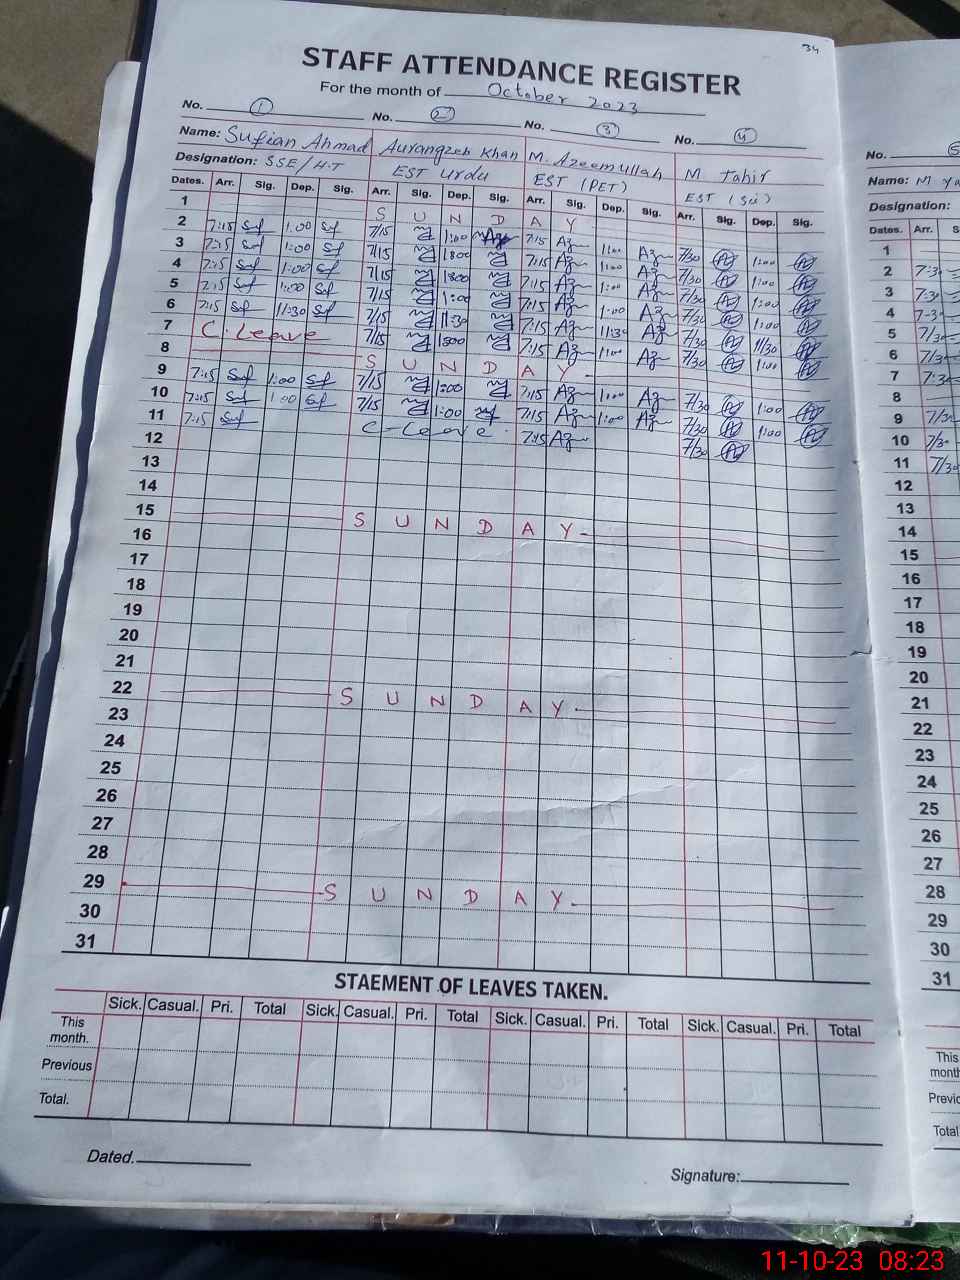 34
STAFF ATTENDANCE REGISTER
For the month of October 2023
No. 1 No. 2 No. 3 No. 4
Name: Sufian Ahmad Aurangzeb Khan M. Azeemullah M Tahir
Designation: SSE/H.T EST Urdu EST (PET) EST (Sci)
Dates. Arr. Sig. Dep. Sig. Arr. Sig. Dep. Sig. Arr. Sig. Dep. Sig. Arr. Sig. Dep. Sig.
1 S U N D A Y
2 7:15 1:00 7/15 1:00 7:15 1:00 7/30 1:00
3 7:15 1:00 7/15 1:00 7:15 1:00 7/30 1:00
4 7:15 1:00 7/15 1:00 7:15 1:00 7/30 1:00
5 7:15 1:00 7/15 1:00 7:15 1:00 7/30 1:00
6 7:15 11:30 7/15 11:30 7:15 11:30 7/30 11/30
7 C. Leave 7/15 1:00 7:15 1:00 7/30 1:00
8 S U N D A Y
9 7:15 1:00 7/15 1:00 7:15 1:00 7/30 1:00
10 7:15 1:00 7/15 1:00 7:15 1:00 7/30 1:00
11 7:15 C-Leave 7:15 7/30
12
13
14
15 S U N D A Y
16
17
18
19
20
21
22 S U N D A Y
23
24
25
26
27
28
29 S U N D A Y
30
31
STAEMENT OF LEAVES TAKEN.
Sick. Casual. Pri. Total Sick. Casual. Pri. Total Sick. Casual. Pri. Total Sick. Casual. Pri. Total
This month.
Previous
Total.
Dated.
Signature:
No. 5
Name: M
Designation:
Dates. Arr.
1
2 7:30
3 7:30
4 7:30
5 7/30
6 7/30
7 7:30
8
9 7/30
10 7/30
11 7/30
12
13
14
15
16
17
18
19
20
21
22
23
24
25
26
27
28
29
30
31
This
Total
11-10-23 08:23